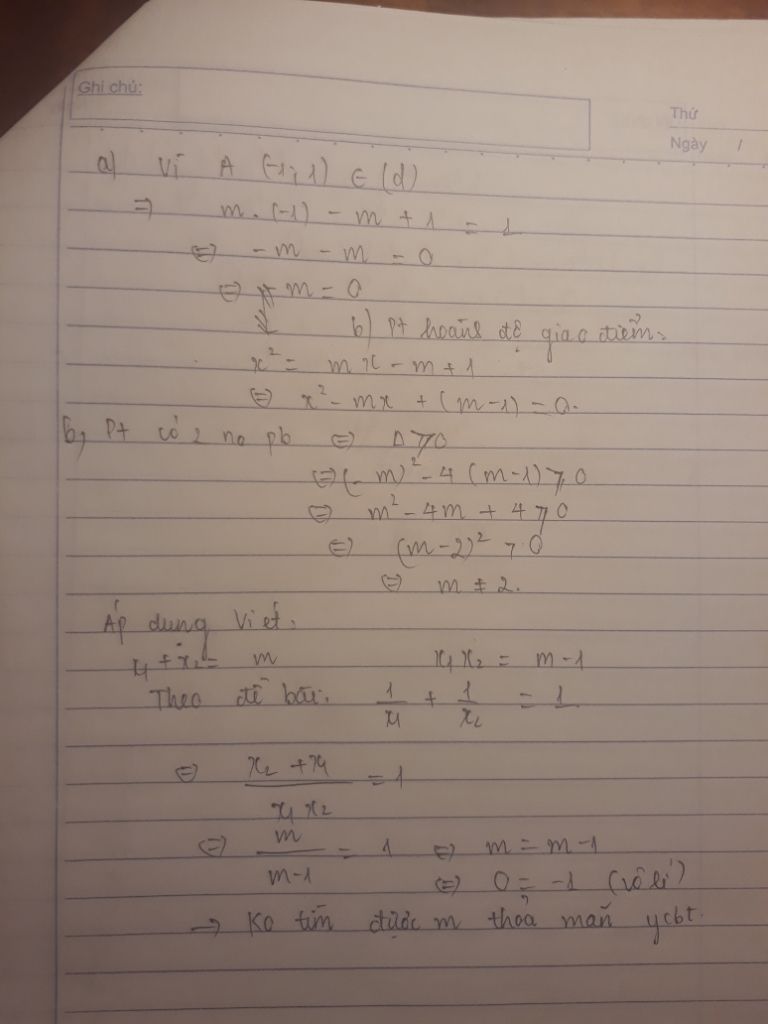 Ghi chú:
Thứ
Ngày /
a) Vì A (-1; 1) ∈ (d)
⇒ m . (-1) - m + 1 = 1
⇔ - m - m = 0
⇔ m = 0
b) Pt hoành độ giao điểm:
x² = mx - m + 1
⇔ x² - mx + (m-1) = 0.
b, Pt có 2 no pb ⇔ Δ > 0
⇔ (-m)² - 4 (m-1) > 0
⇔ m² - 4m + 4 > 0
⇔ (m-2)² > 0
⇔ m ≠ 2.
Áp dụng Viét:
x₁ + x₂ = m x₁x₂ = m-1
Theo đề bài: 1/x₁ + 1/x₂ = 1
⇔ (x₂ + x₁)/(x₁x₂) = 1
⇔ m/(m-1) = 1 ⇔ m = m-1
⇔ 0 = -1 (vô lí)
→ Ko tìm được m thỏa mãn ycbt.